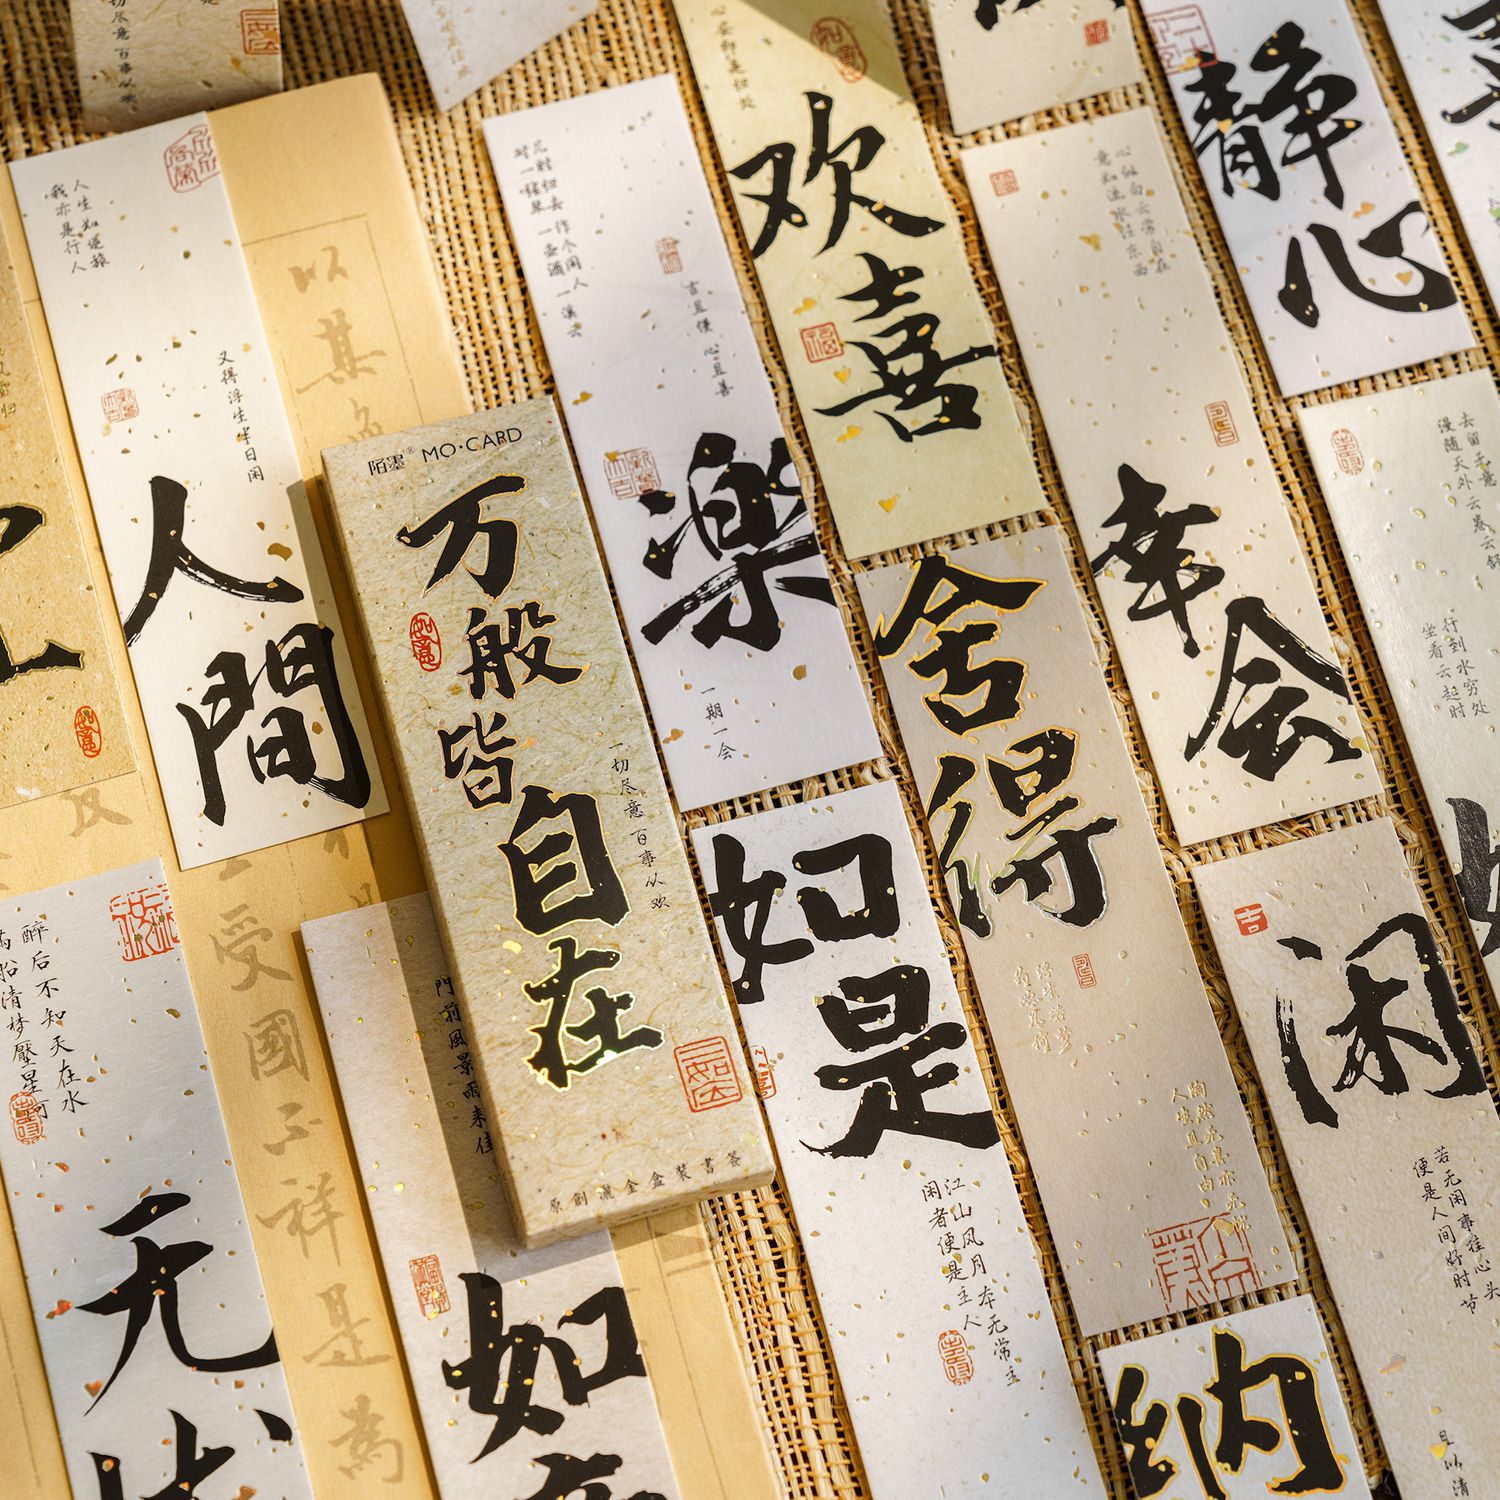 一切尽意百事从欢
人生如逆旅
我亦是行人
又得浮生半日闲
人間
陌墨® MO·CARD
万般皆自在
如意
一切尽意 百事从欢
原創灑金盒裝書签
几时归去 作个闲人
对一张琴 一壶酒 一溪云
吉且便 心且善
樂
一期一会
心安即是归处
如意
欢喜
福
舍得
陶然无喜亦无忧
人生且自由
心似白云常自在
意如流水任东西
幸会
静心
去留无意
漫随天外云卷云舒
行到水穷处
坐看云起时
如是
江山风月 本无常主
闲者便是主人
吉
闲
若无闲事挂心头
便是人间好时节
且以清
纳
醉后不知天在水
满船清梦壓星河
无
門前風景雨来佳
如
如意
以其
受國不祥是為